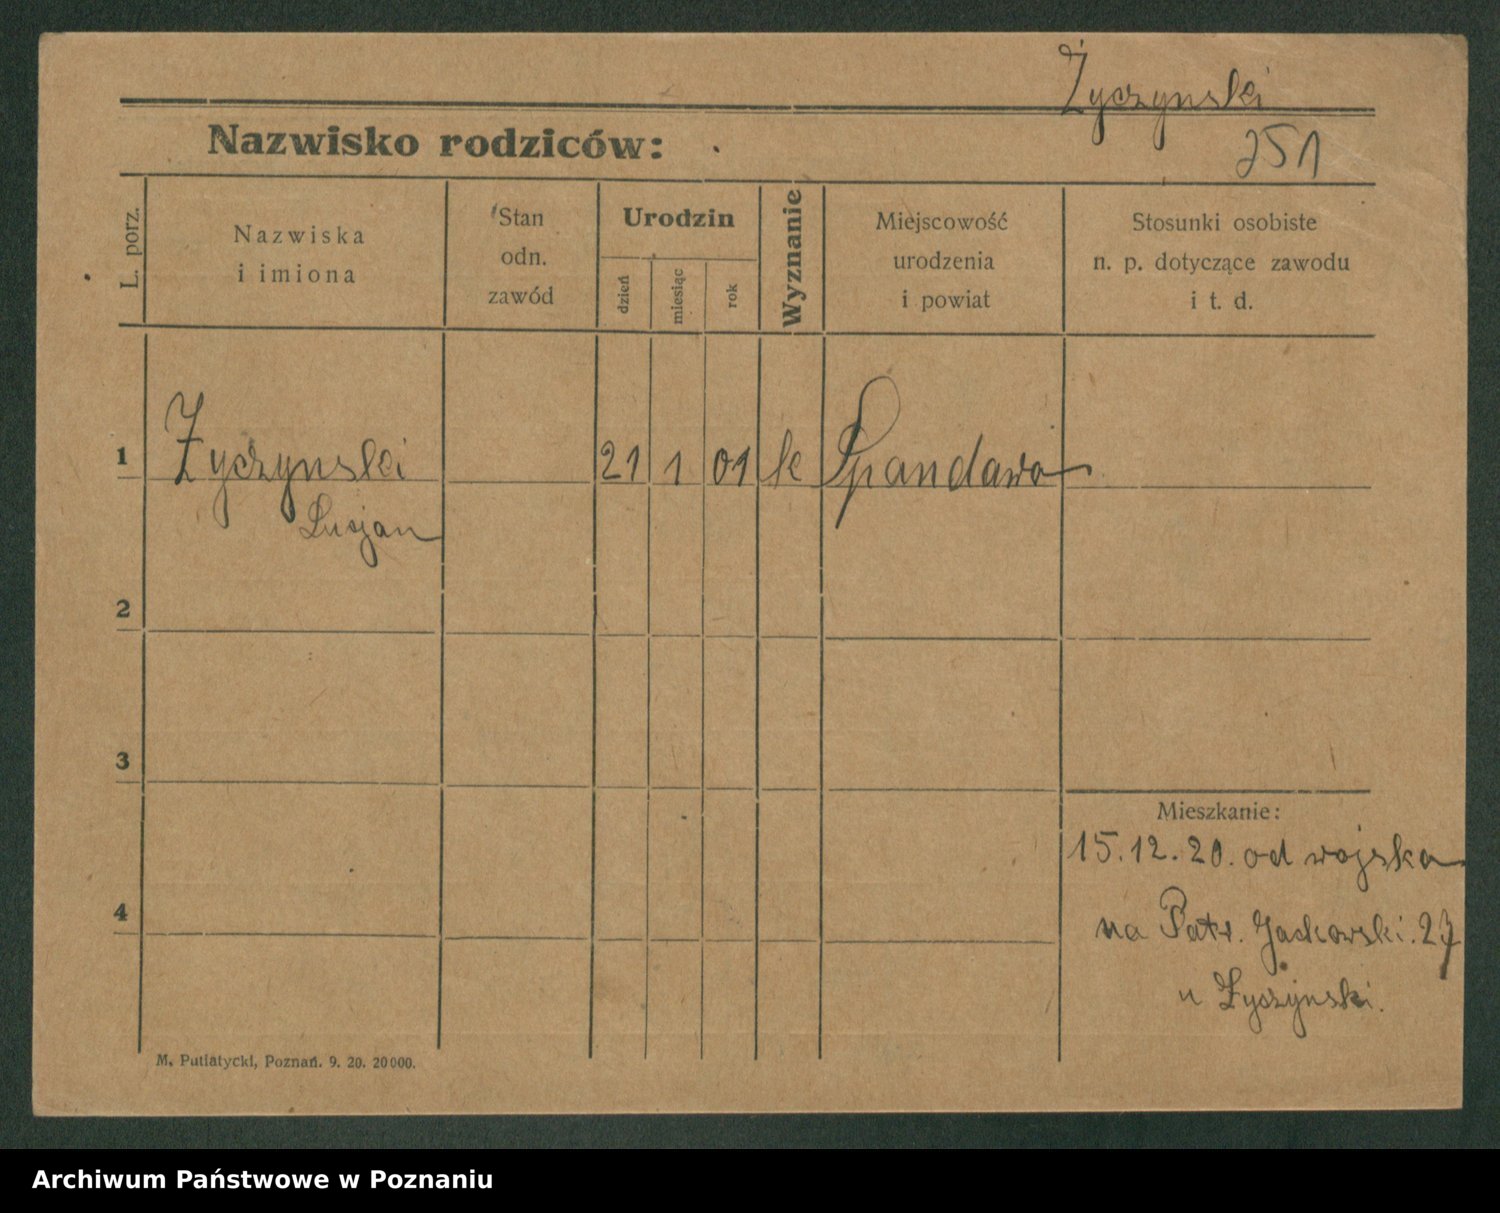 Życzynski
251
Nazwisko rodziców:
L. porz.
Nazwiska
i imiona
Stan
odn.
zawód
Urodzin
dzień
miesiąc
rok
Wyznanie
Miejscowość
urodzenia
i powiat
Stosunki osobiste
n. p. dotyczące zawodu
i t. d.
1 Życzynski 21 1 01 k Spandawa
Lucjan
2
3
Mieszkanie:
15.12.20. od wojska
4
na Patr. Jackowski. 27
u Życzynski.
M. Putiatycki, Poznań. 9. 20. 20000.
Archiwum Państwowe w Poznaniu